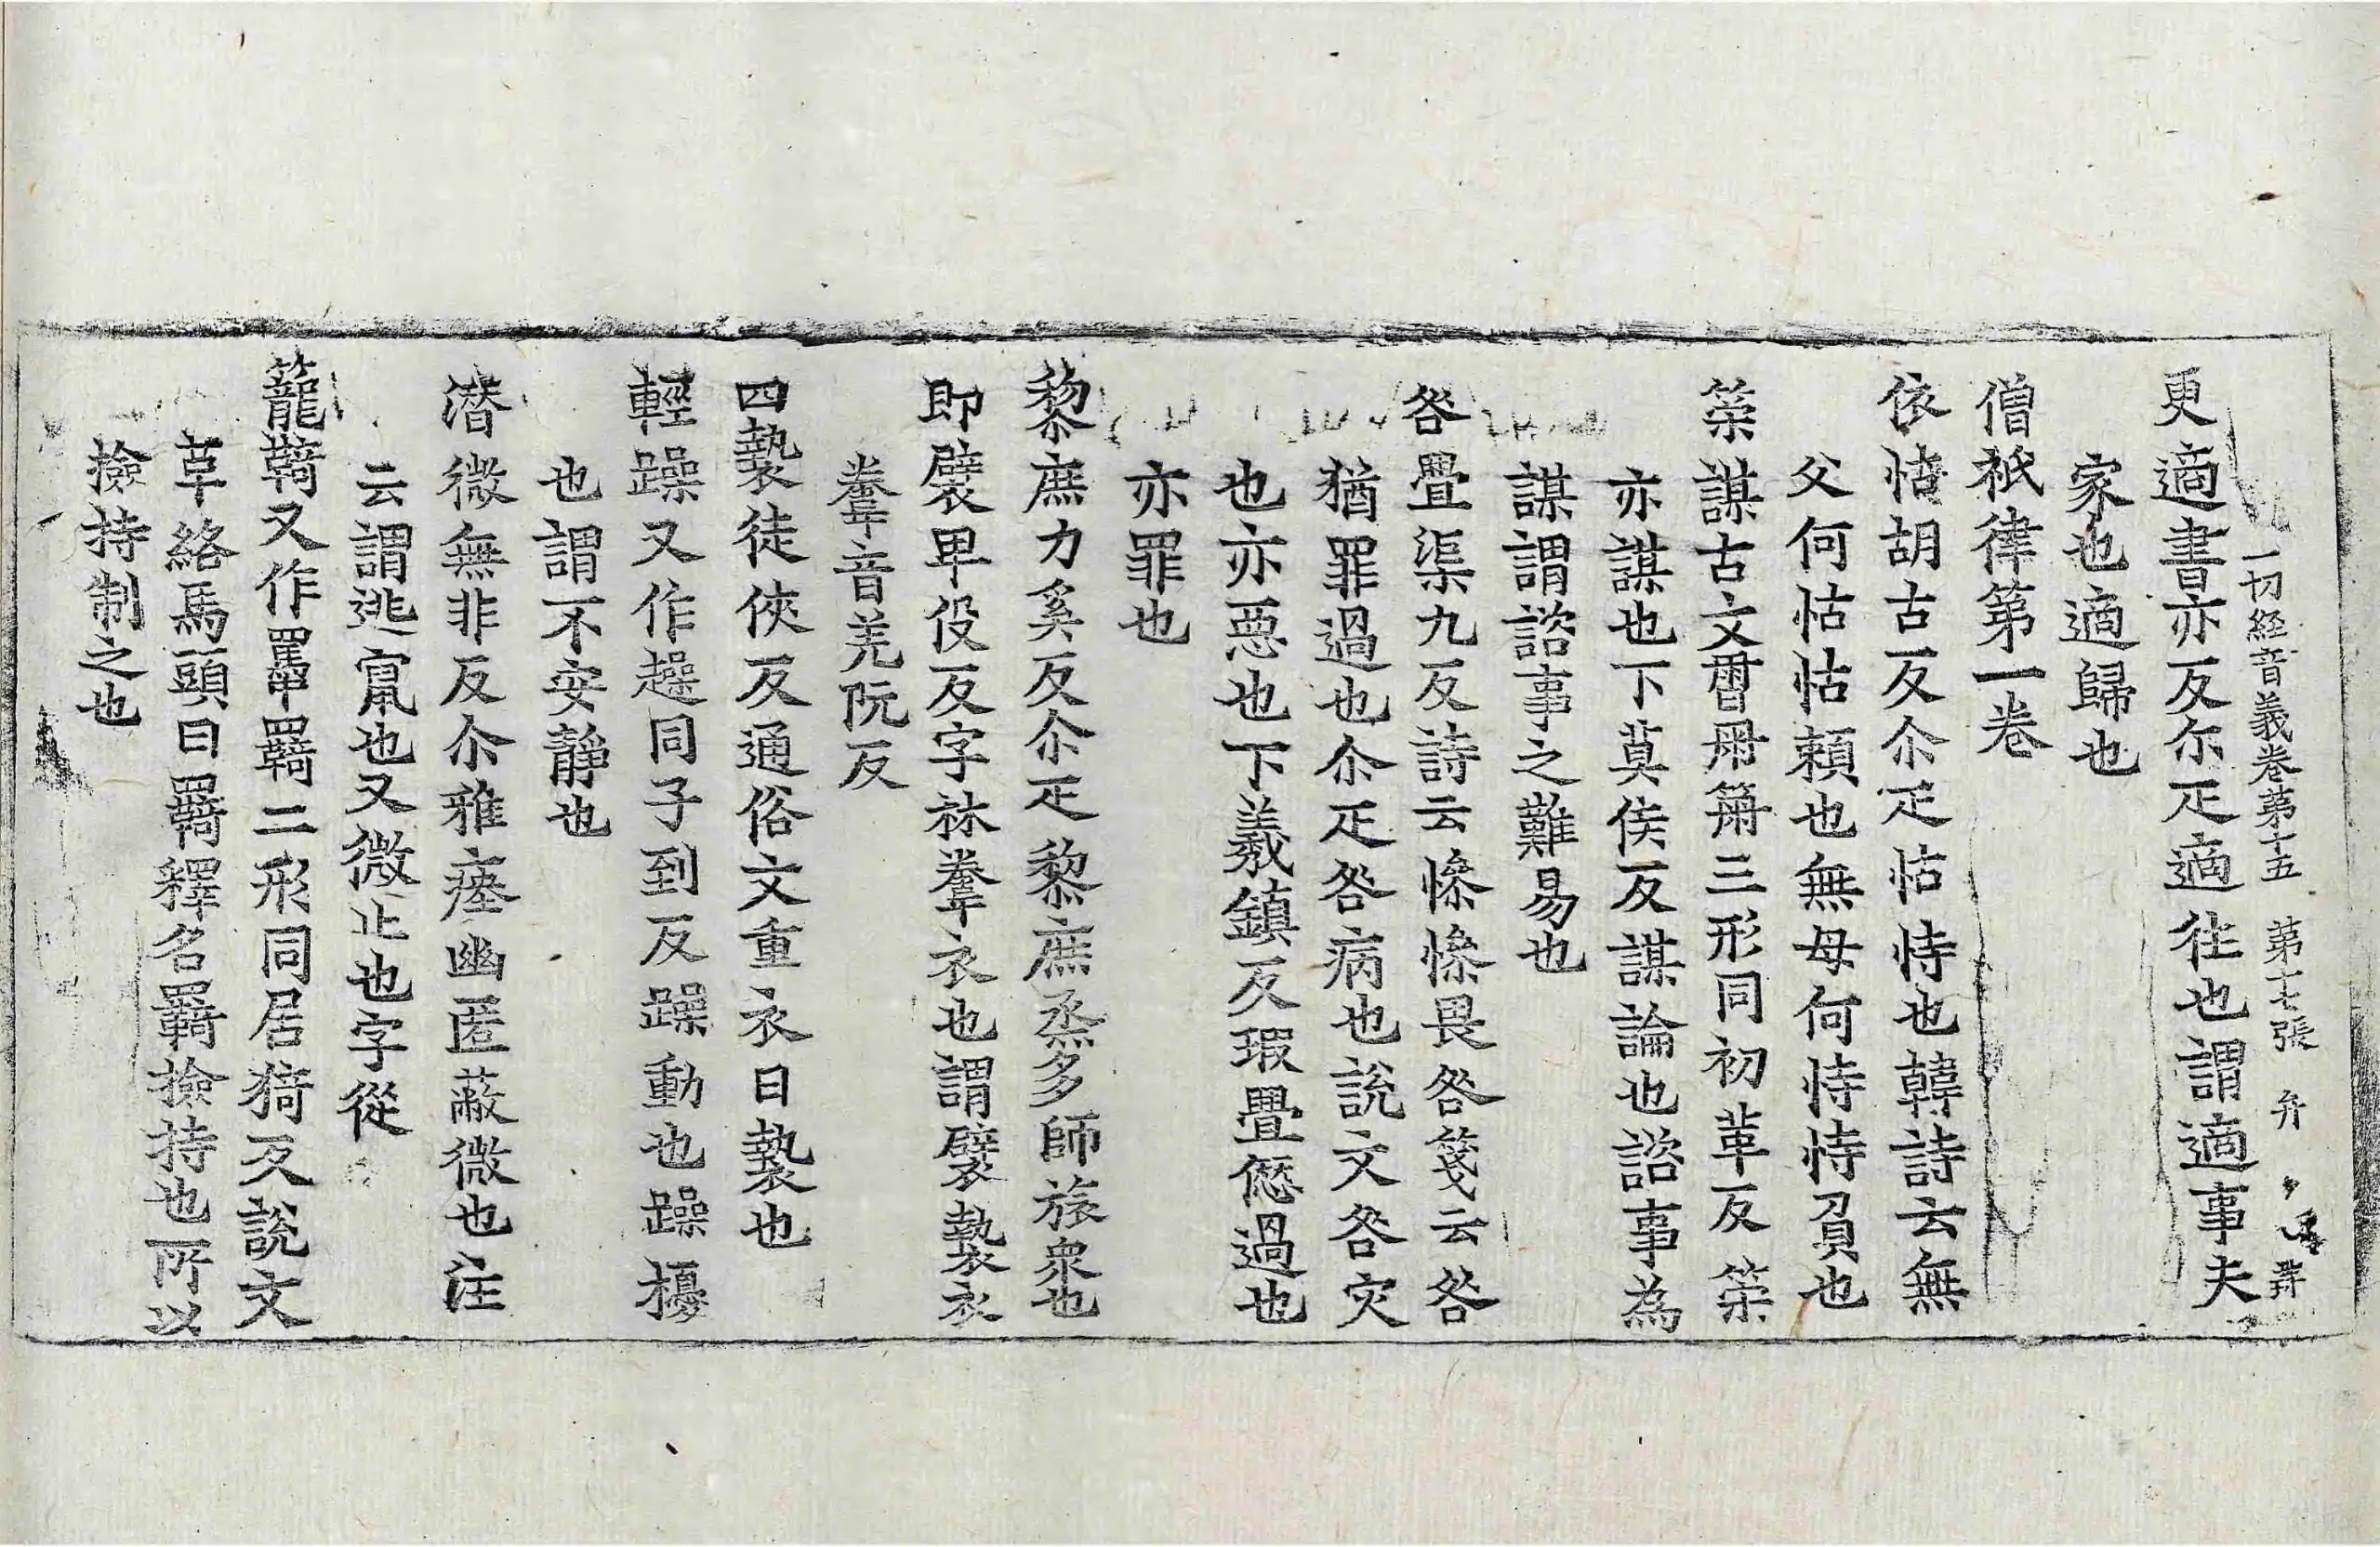 一切經音義卷第十五 第十七張 弁
更適書亦反尒疋適往也謂適事夫
家也適歸也
僧祇律第一卷
依怙胡古反尒疋怙恃也韓詩云無
父何怙怙賴也無母何恃恃負也
筞謀古文𠕋笧三形同初革反筞
亦謀也下莫侯反謀論也諮事為
謀謂諮事之難易也
咎舋渠九反詩云慘慘畏咎箋云咎
猶罪過也尒疋咎病也說文咎灾
也亦惡也下羲鎮反瑕舋愆過也
亦罪也
黎庶力奚反尒疋黎庶烝多師旅衆也
即襞卑伇反字林韏衣也謂襞褺衣
韏音羌阮反
四褺徒俠反通俗文重衣曰褺也
輕躁又作趮同子到反躁動也躁擾
也謂不安靜也
潛微無非反尒雅瘞幽匿蔽微也注
云謂逃竄也又微止也字從
籠羇又作𦌭羈二形同居猗反說文
革絡馬頭曰羈釋名羈撿持也所以
撿持制之也